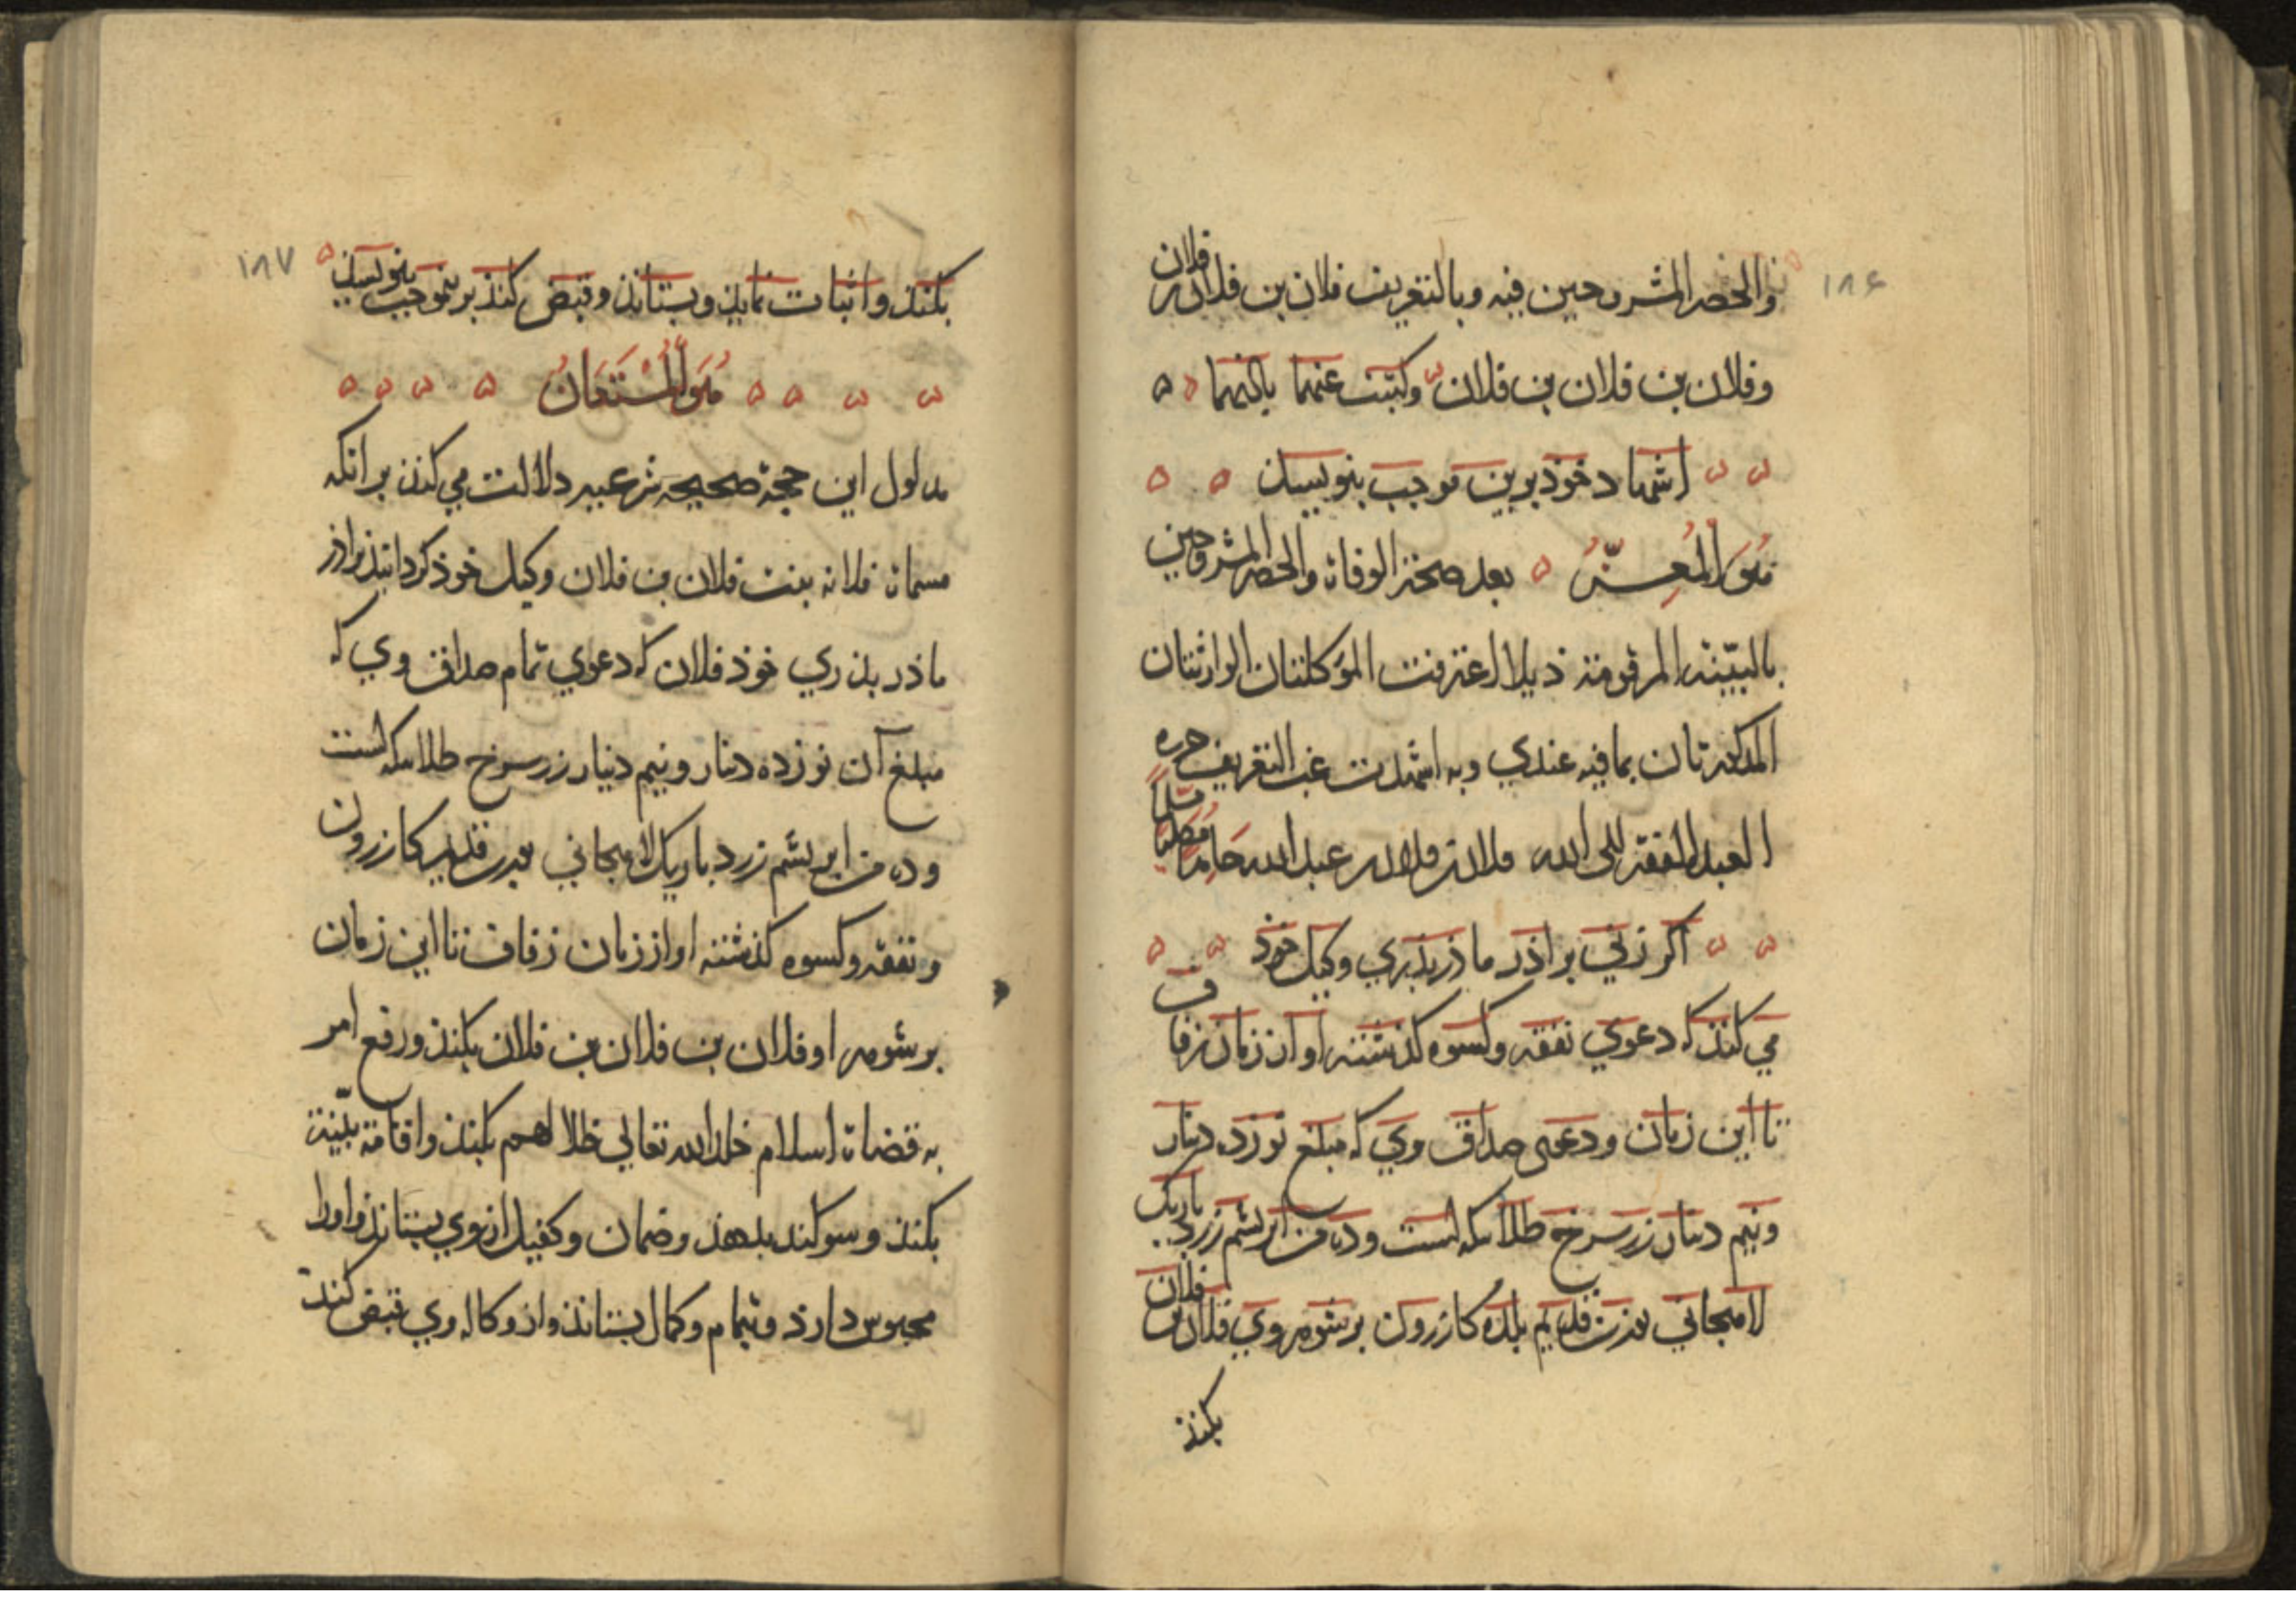 ۱۸۶
والحصر المشروحين فيه وبالتعريف فلان بن فلان بن فلان
وفلان بن فلان بن فلان وكتبت عنهما باذنهما
اشهاد خوذ برين موجب بنويسند
هو المعز بعد صحة الوفاة والحصر المشروحين
بالبينة المرقومة ذيلا اعترفت الموكلتان الوارثتان
المذكورتان بما فيه عندي وبه اشهدت غب التعريف حرره
العبد المفتقر الى الله فلان بن فلان بن عبد الله حامدا مصليا مسلما
اكر زني براذر ماذر بذري وكيل خوذ
مي كنذ كه دعوي نفقه وكسوه كذشته او از زمان زفاف
تا اين زمان ودعوى صداق وي كه مبلغ نوزده دينار
ونيم دينار زر سرخ طلا سكه است وده من ابريشم زرد باريك
لاهجاني بوزن قديم بلده كازرون برشوهر وي فلان بن فلان
بكنذ
۱۸۷
بكنذ واثبات نمايذ وبستانذ وقبض كنذ برينموجب بنويسند
هو المستعان
مدلول اين حجة صحيحه شرعيه دلالت مي كنذ برانكه
مسماة فلانه بنت فلان بن فلان وكيل خوذ كردانيذ براذر
ماذر بذري خوذ فلان كه دعوي تمام صداق وي كه
مبلغ آن نوزده دينار ونيم دينار زر سرخ طلا سكه است
وده من ابريشم زرد باريك لاهجاني بوزن قديم كازرون
ونفقه وكسوه كذشته او از زمان زفاف تا اين زمان
برشوهر او فلان بن فلان بن فلان بكنذ ورفع امر
به قضاة اسلام خلد الله تعالي ظلالهم بكنذ واقامة بينة
بكنذ وسوكند بدهذ وضمان وكفيل از وي بستانذ واورا
محبوس دارذ وبتمام وكمال بستانذ واز وكاله وي قبض كند